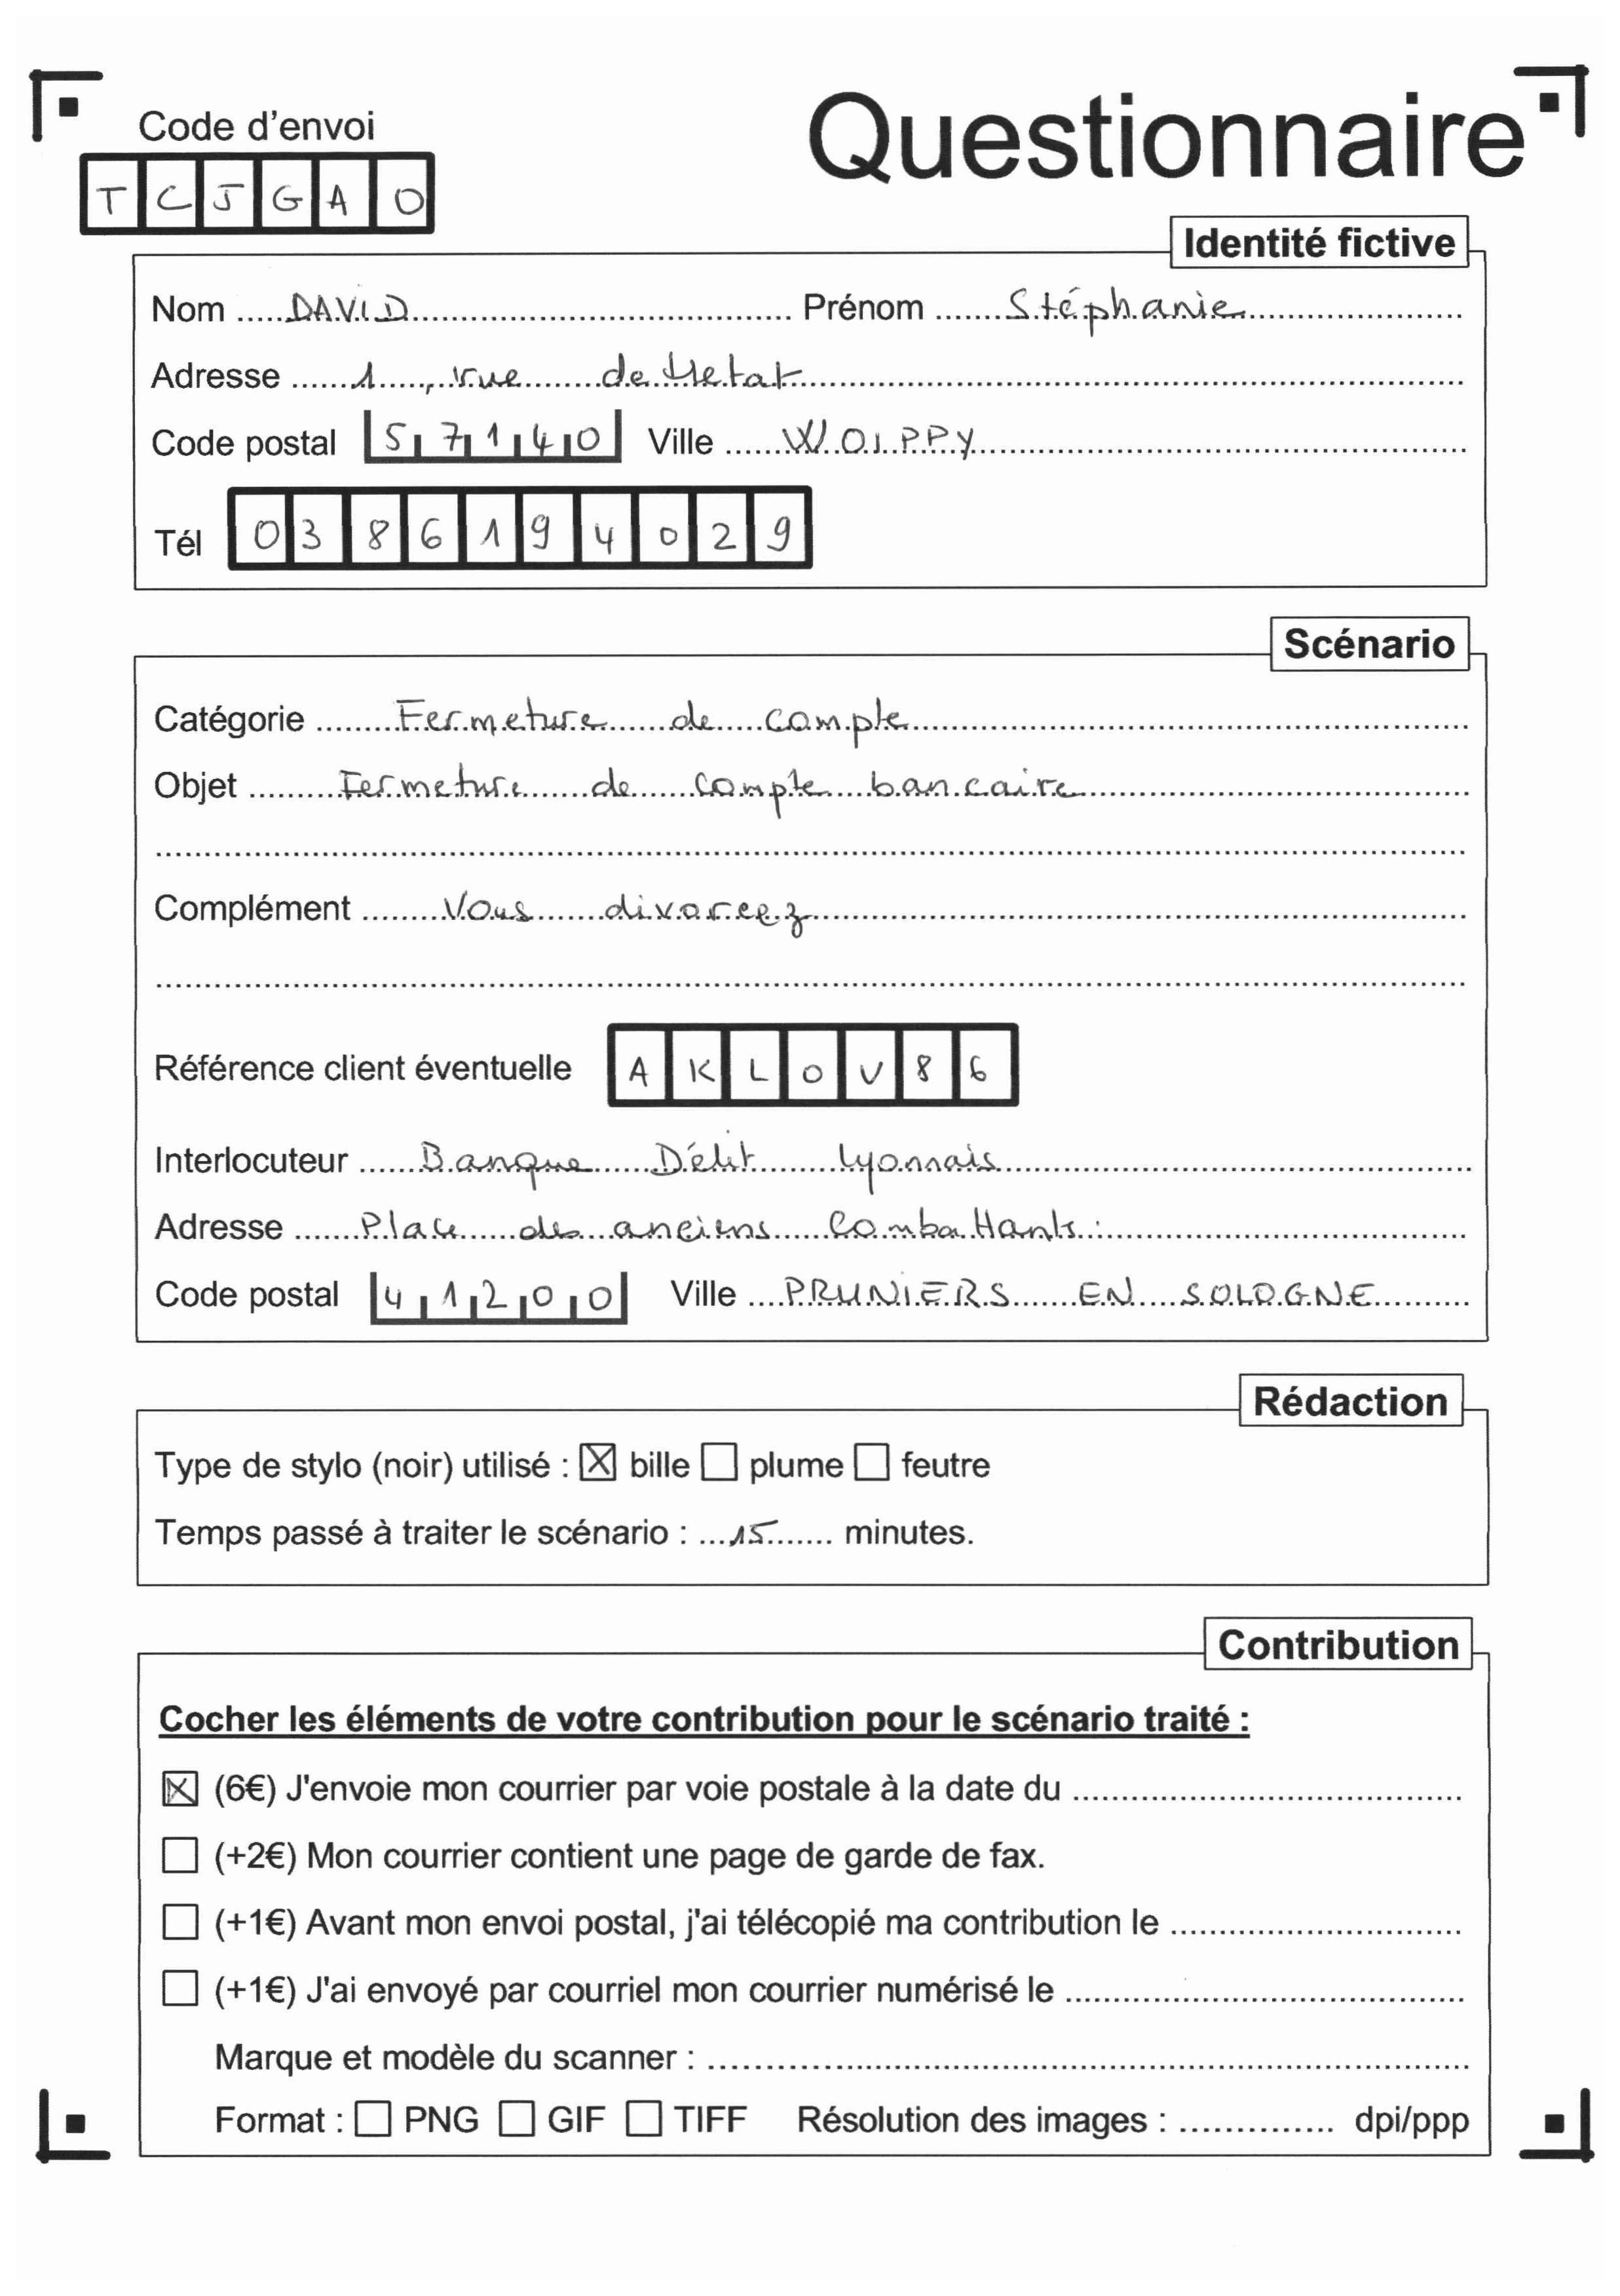 Code d'envoi
Questionnaire
T C J G A O
Identité fictive
Nom ..... DAVID ..... Prénom ..... Stéphanie .....
Adresse ..... 1 , rue de .....
Code postal 57140 Ville ..... WOIPPY .....
Tél 0386194029
Scénario
Catégorie ..... Fermeture de compte .....
Objet ..... Fermeture de compte bancaire .....
Complément ..... Vous divorcez .....
Référence client éventuelle AKLOV86
Interlocuteur ..... Banque Délit lyonnais .....
Adresse ..... Place des anciens Combattants .....
Code postal 41200 Ville ..... PRUNIERS EN SOLOGNE .....
Rédaction
Type de stylo (noir) utilisé : ☒ bille ☐ plume ☐ feutre
Temps passé à traiter le scénario : ... 15 ....... minutes.
Contribution
Cocher les éléments de votre contribution pour le scénario traité :
☒ (6€) J'envoie mon courrier par voie postale à la date du .....
☐ (+2€) Mon courrier contient une page de garde de fax.
☐ (+1€) Avant mon envoi postal, j'ai télécopié ma contribution le .....
☐ (+1€) J'ai envoyé par courriel mon courrier numérisé le .....
Marque et modèle du scanner : .....
Format : ☐ PNG ☐ GIF ☐ TIFF Résolution des images : ..... dpi/ppp